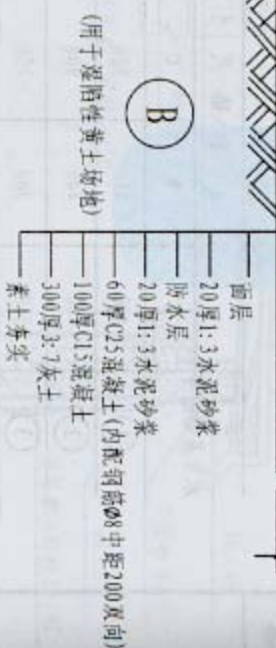 面层
20厚1:3水泥砂浆
防水层
20厚1:3水泥砂浆
60厚C25混凝土(内配钢筋Ø8中距200双向)
100厚C15混凝土
300厚3:7灰土
素土夯实
B
(用于湿陷性黄土场地)